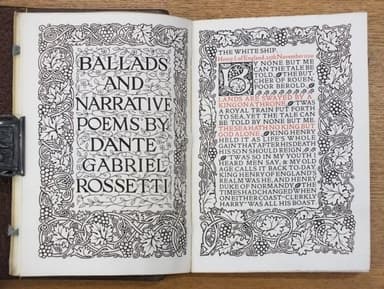 BALLADS
AND
NARRATIVE
POEMS BY
DANTE
GABRIEL
ROSSETTI.
THE WHITE SHIP.
Henry I. of England. 25th November 1120
BY NONE BUT ME
CAN THE TALE BE
TOLD, THE BUT-
CHER OF ROUEN,
POOR BEROLD.
LANDS ARE SWAYED BY
A KING ON A THRONE. 'TWAS
A ROYAL TRAIN PUT FORTH
TO SEA, YET THE TALE CAN
BE TOLD BY NONE BUT ME.
THE SEA HATH NO KING BUT
GOD ALONE. KING HENRY
HELD IT AS LIFE'S WHOLE
GAIN THAT AFTER HIS DEATH
HIS SON SHOULD REIGN.
'TWAS SO IN MY YOUTH I
HEARD MEN SAY, & MY OLD
AGE CALLS IT BACK TO-DAY.
KING HENRY OF ENGLAND'S
REALM WAS HE, AND HENRY
DUKE OF NORMANDY. THE
TIMES HAD CHANGED WHEN
ON EITHER COAST "CLERKLY
HARRY" WAS ALL HIS BOAST.